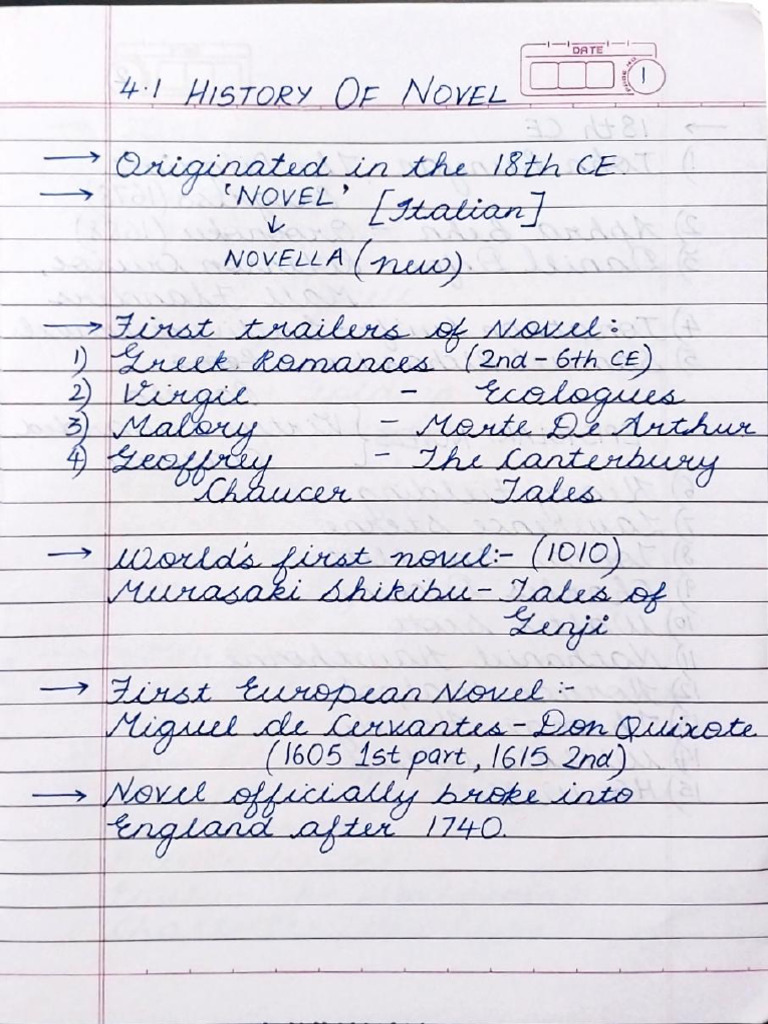 DATE
PAGE NO.
1
4.1 HISTORY OF NOVEL
→ Originated in the 18th CE
→ 'NOVEL' [Italian]
↓
NOVELLA (new)
→ First trailers of Novel:
1) Greek Romances (2nd - 6th CE)
2) Virgil - Ecologues
3) Malory - Morte De Arthur
4) Geoffrey - The Canterbury
Chaucer Tales
→ World's first novel:- (1010)
Murasaki Shikibu - Tales of
Genji
→ First European Novel:-
Miguel de Cervantes - Don Quixote
(1605 1st part, 1615 2nd)
→ Novel officially broke into
England after 1740.